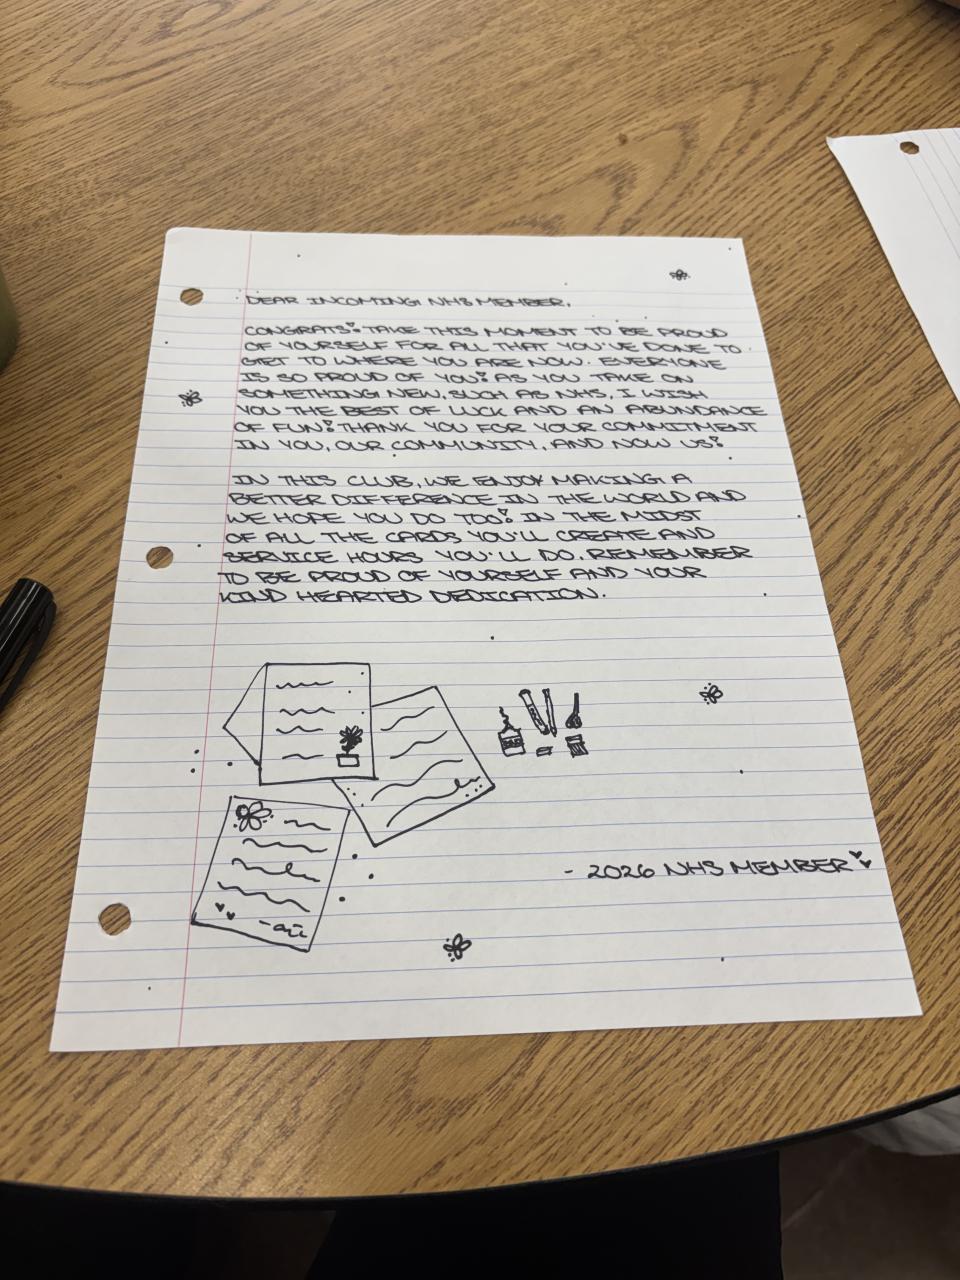 DEAR INCOMING NHS MEMBER,
CONGRATS! TAKE THIS MOMENT TO BE PROUD
OF YOURSELF FOR ALL THAT YOU'VE DONE TO
GET TO WHERE YOU ARE NOW. EVERYONE
IS SO PROUD OF YOU! AS YOU TAKE ON
SOMETHING NEW, SUCH AS NHS, I WISH
YOU THE BEST OF LUCK AND AN ABUNDANCE
OF FUN! THANK YOU FOR YOUR COMMITMENT
IN YOU, OUR COMMUNITY, AND NOW US!
IN THIS CLUB, WE ENJOY MAKING A
BETTER DIFFERENCE IN THE WORLD AND
WE HOPE YOU DO TOO! IN THE MIDST
OF ALL THE CARDS YOU'LL CREATE AND
SERVICE HOURS YOU'LL DO. REMEMBER
TO BE PROUD OF YOURSELF AND YOUR
KIND HEARTED DEDICATION.
- 2026 NHS MEMBER